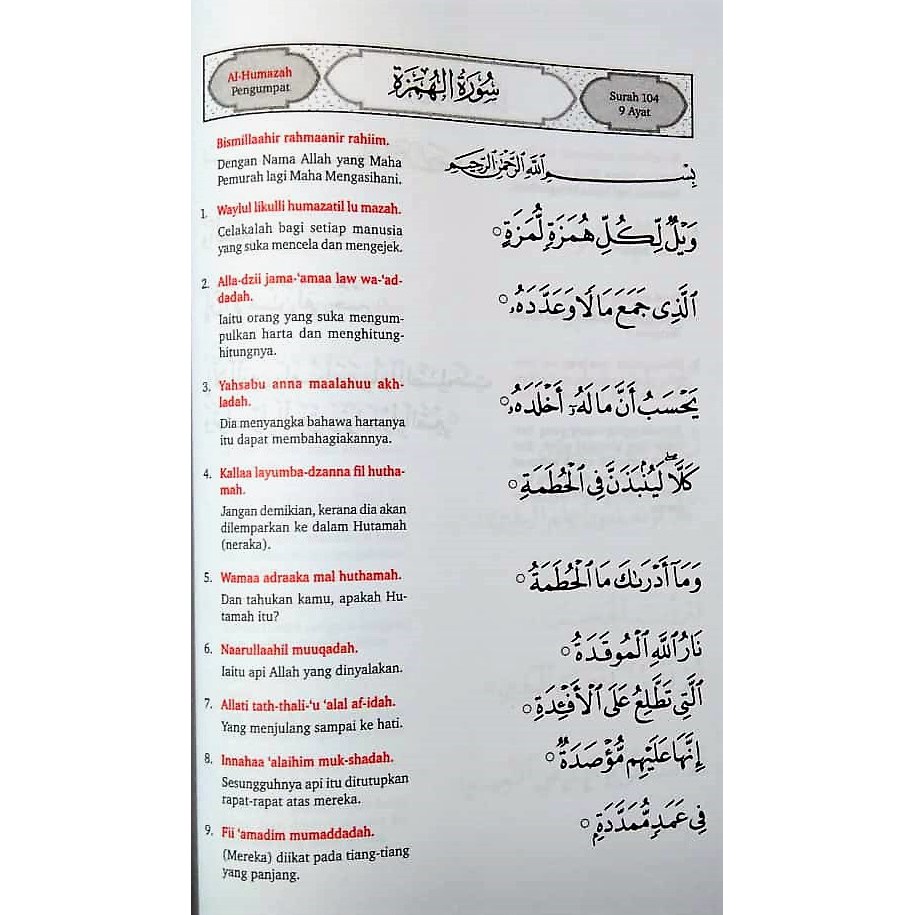 Al-Humazah
Pengumpat
سُورَةُ الْهُمَزَةِ
Surah 104
9 Ayat
Bismillaahir rahmaanir rahiim.
Dengan Nama Allah yang Maha
Pemurah lagi Maha Mengasihani.
بِسْمِ اللَّهِ الرَّحْمَٰنِ الرَّحِيمِ
1. Waylul likulli humazatil lu mazah.
Celakalah bagi setiap manusia
yang suka mencela dan mengejek.
وَيْلٌ لِّكُلِّ هُمَزَةٍ لُّمَزَةٍ
2. Alla-dzii jama-'amaa law wa-'ad-
dadah.
Iaitu orang yang suka mengum-
pulkan harta dan menghitung-
hitungnya.
الَّذِى جَمَعَ مَالًا وَعَدَّدَهُۥ
3. Yahsabu anna maalahuu akh-
ladah.
Dia menyangka bahawa hartanya
itu dapat membahagiakannya.
يَحْسَبُ أَنَّ مَالَهُۥٓ أَخْلَدَهُۥ
4. Kallaa layumba-dzanna fil hutha-
mah.
Jangan demikian, kerana dia akan
dilemparkan ke dalam Hutamah
(neraka).
كَلَّا ۖ لَيُنۢبَذَنَّ فِى الْحُطَمَةِ
5. Wamaa adraaka mal huthamah.
Dan tahukan kamu, apakah Hu-
tamah itu?
وَمَآ أَدْرَىٰكَ مَا الْحُطَمَةُ
6. Naarullaahil muuqadah.
Iaitu api Allah yang dinyalakan.
نَارُ اللَّهِ الْمُوقَدَةُ
7. Allati tath-thali-'u 'alal af-idah.
Yang menjulang sampai ke hati.
الَّتِى تَطَّلِعُ عَلَى الْأَفْـِٔدَةِ
8. Innahaa 'alaihim muk-shadah.
Sesungguhnya api itu ditutupkan
rapat-rapat atas mereka.
إِنَّهَا عَلَيْهِم مُّؤْصَدَةٌ
9. Fii 'amadim mumaddadah.
(Mereka) diikat pada tiang-tiang
yang panjang.
فِى عَمَدٍ مُّمَدَّدَةٍۭ